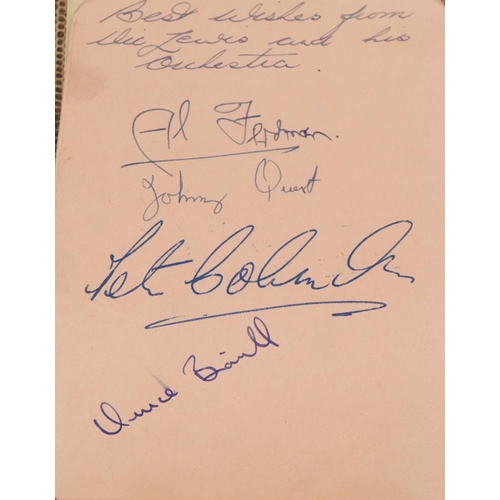 Best wishes from
Vic Lewis and his
Orchestra
Al Ferdman.
Johnny Quest
Peter Coleman
Vince